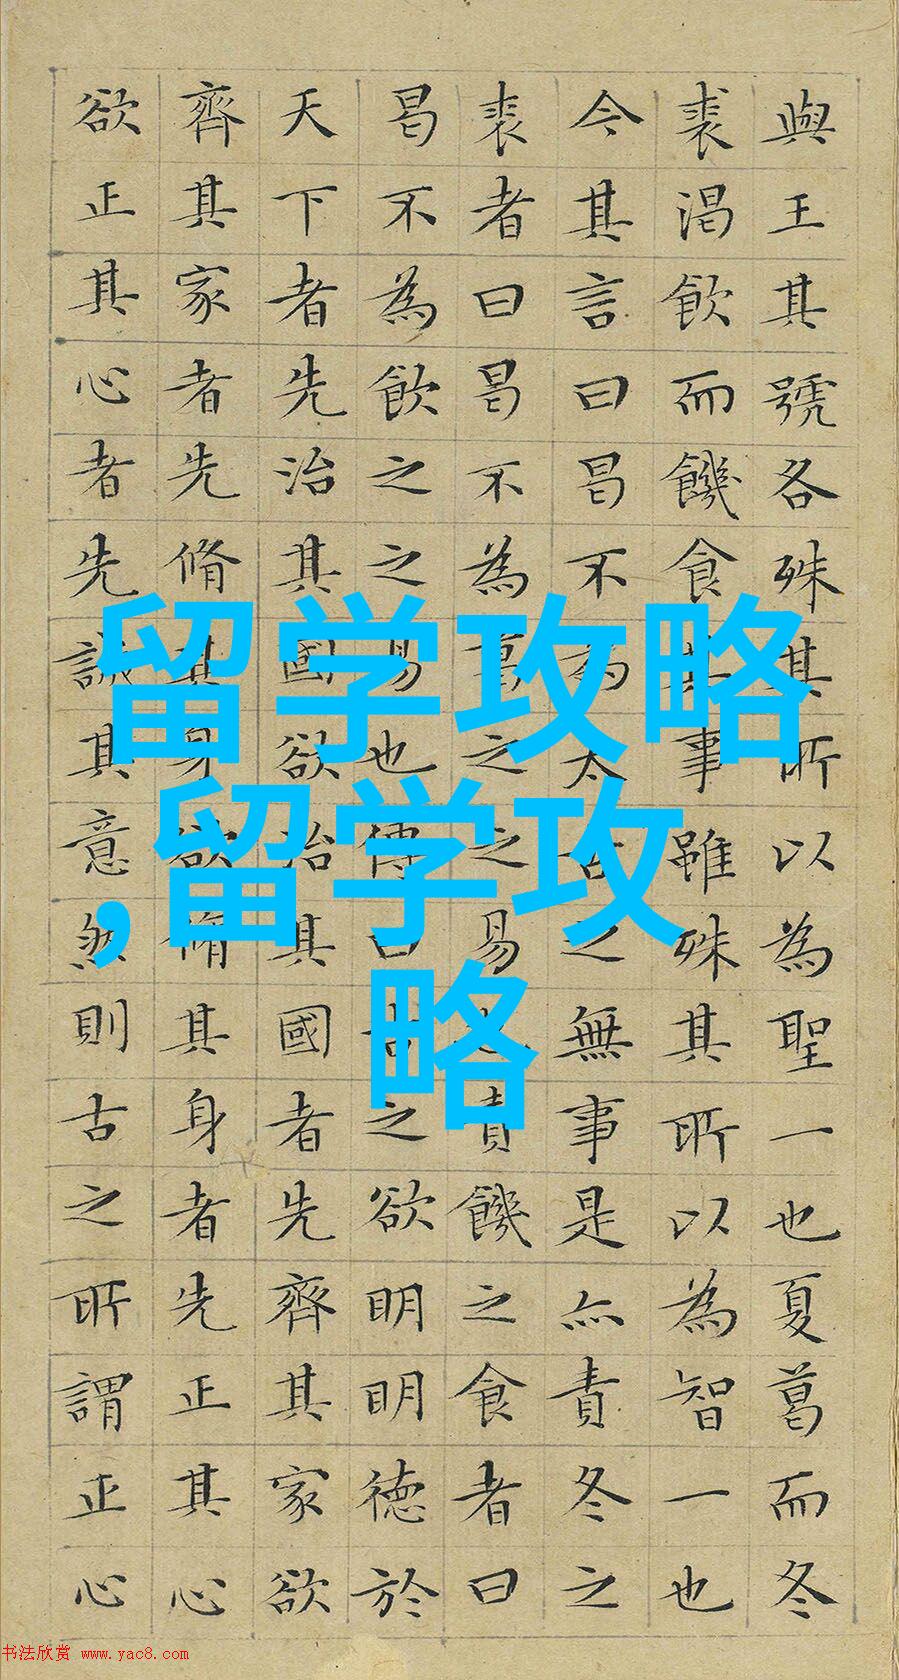 與王其號各殊其所以為聖一也夏葛而冬
裘渴飲而饑食其事雖殊其所以為智一也
今其言曰曷不為太古之無事是亦責冬之
裘者曰曷不為葛之之易也責饑之食者曰
曷不為飲之之易也傳曰古之欲明明德於
天下者先治其國欲治其國者先齊其家欲
齊其家者先脩其身欲脩其身者先正其心
欲正其心者先誠其意然則古之所謂正心
留学攻略
,留学攻
略
书法欣赏 www.yac8.com